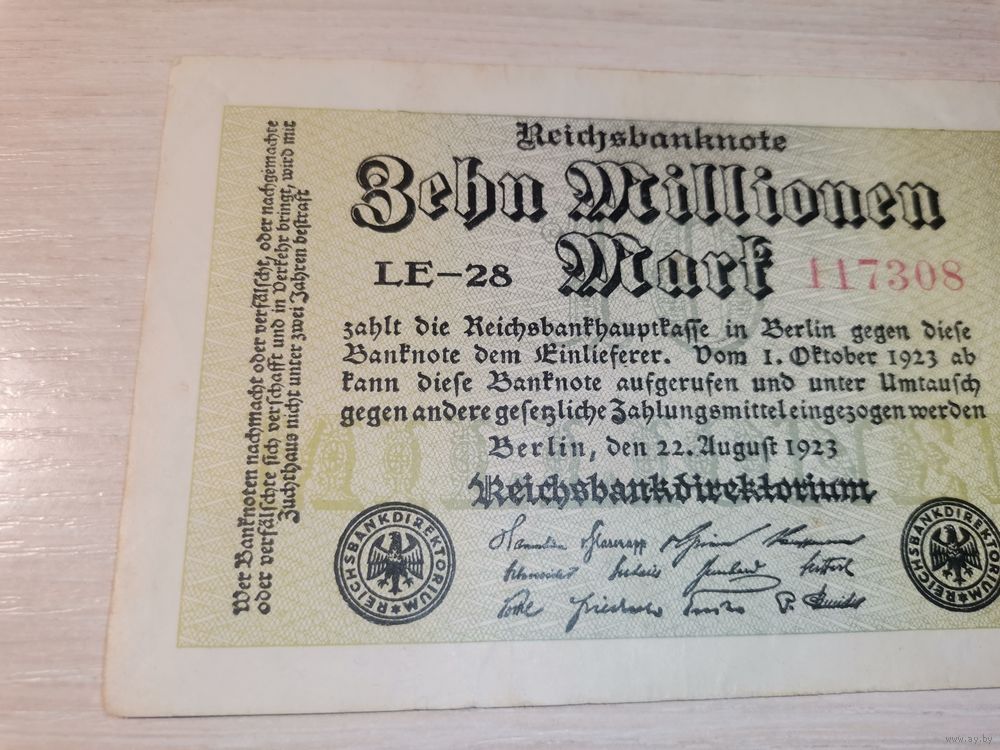 Reichsbanknote
Zehn Millionen
Mark
LE-28
117308
zahlt die Reichsbankhauptkasse in Berlin gegen diese
Banknote dem Einlieferer. Vom 1. Oktober 1923 ab
kann diese Banknote aufgerufen und unter Umtausch
gegen andere gesetzliche Zahlungsmittel eingezogen werden
Berlin, den 22. August 1923
Reichsbankdirektorium
Wer Banknoten nachmacht oder verfälscht, oder nachgemachte
oder verfälschte sich verschafft und in Verkehr bringt, wird mit
Zuchthaus nicht unter zwei Jahren bestraft
REICHSBANKDIREKTORIUM
REICHSBANKDIREKTORIUM
www.ay.by